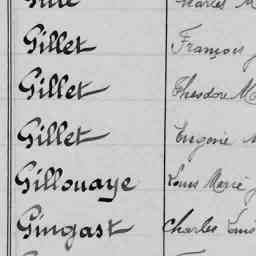 Charles M
Gillet François J
Gillet Théodore M
Gillet Eugénie
Gillouaye Louis Marie J
Gingast Charles Louis